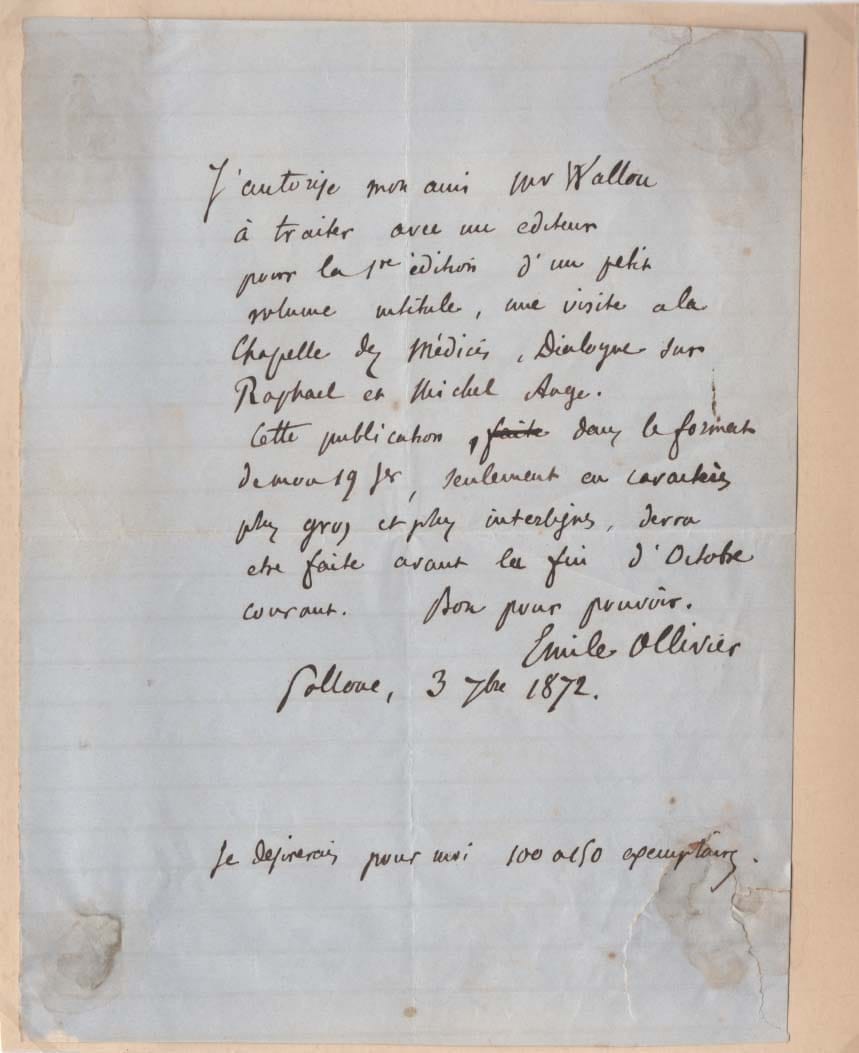 J'autorise mon ami Mr Wallon
à traiter avec un editeur
pour la 1re édition d'un petit
volume intitule, une visite a la
Chapelle des Médicis, Dialogue sur
Raphael et Michel Ange.
Cette publication, faite dans le format
de mon 19 Jer, seulement en caractères
plus gros et plus interlignes, devra
etre faite avant la fin d'Octobre
courant. Bon pour pouvoir.
Emile Ollivier
3 7bre 1872.
Je desirerais pour moi 100 a 150 exemplaires.